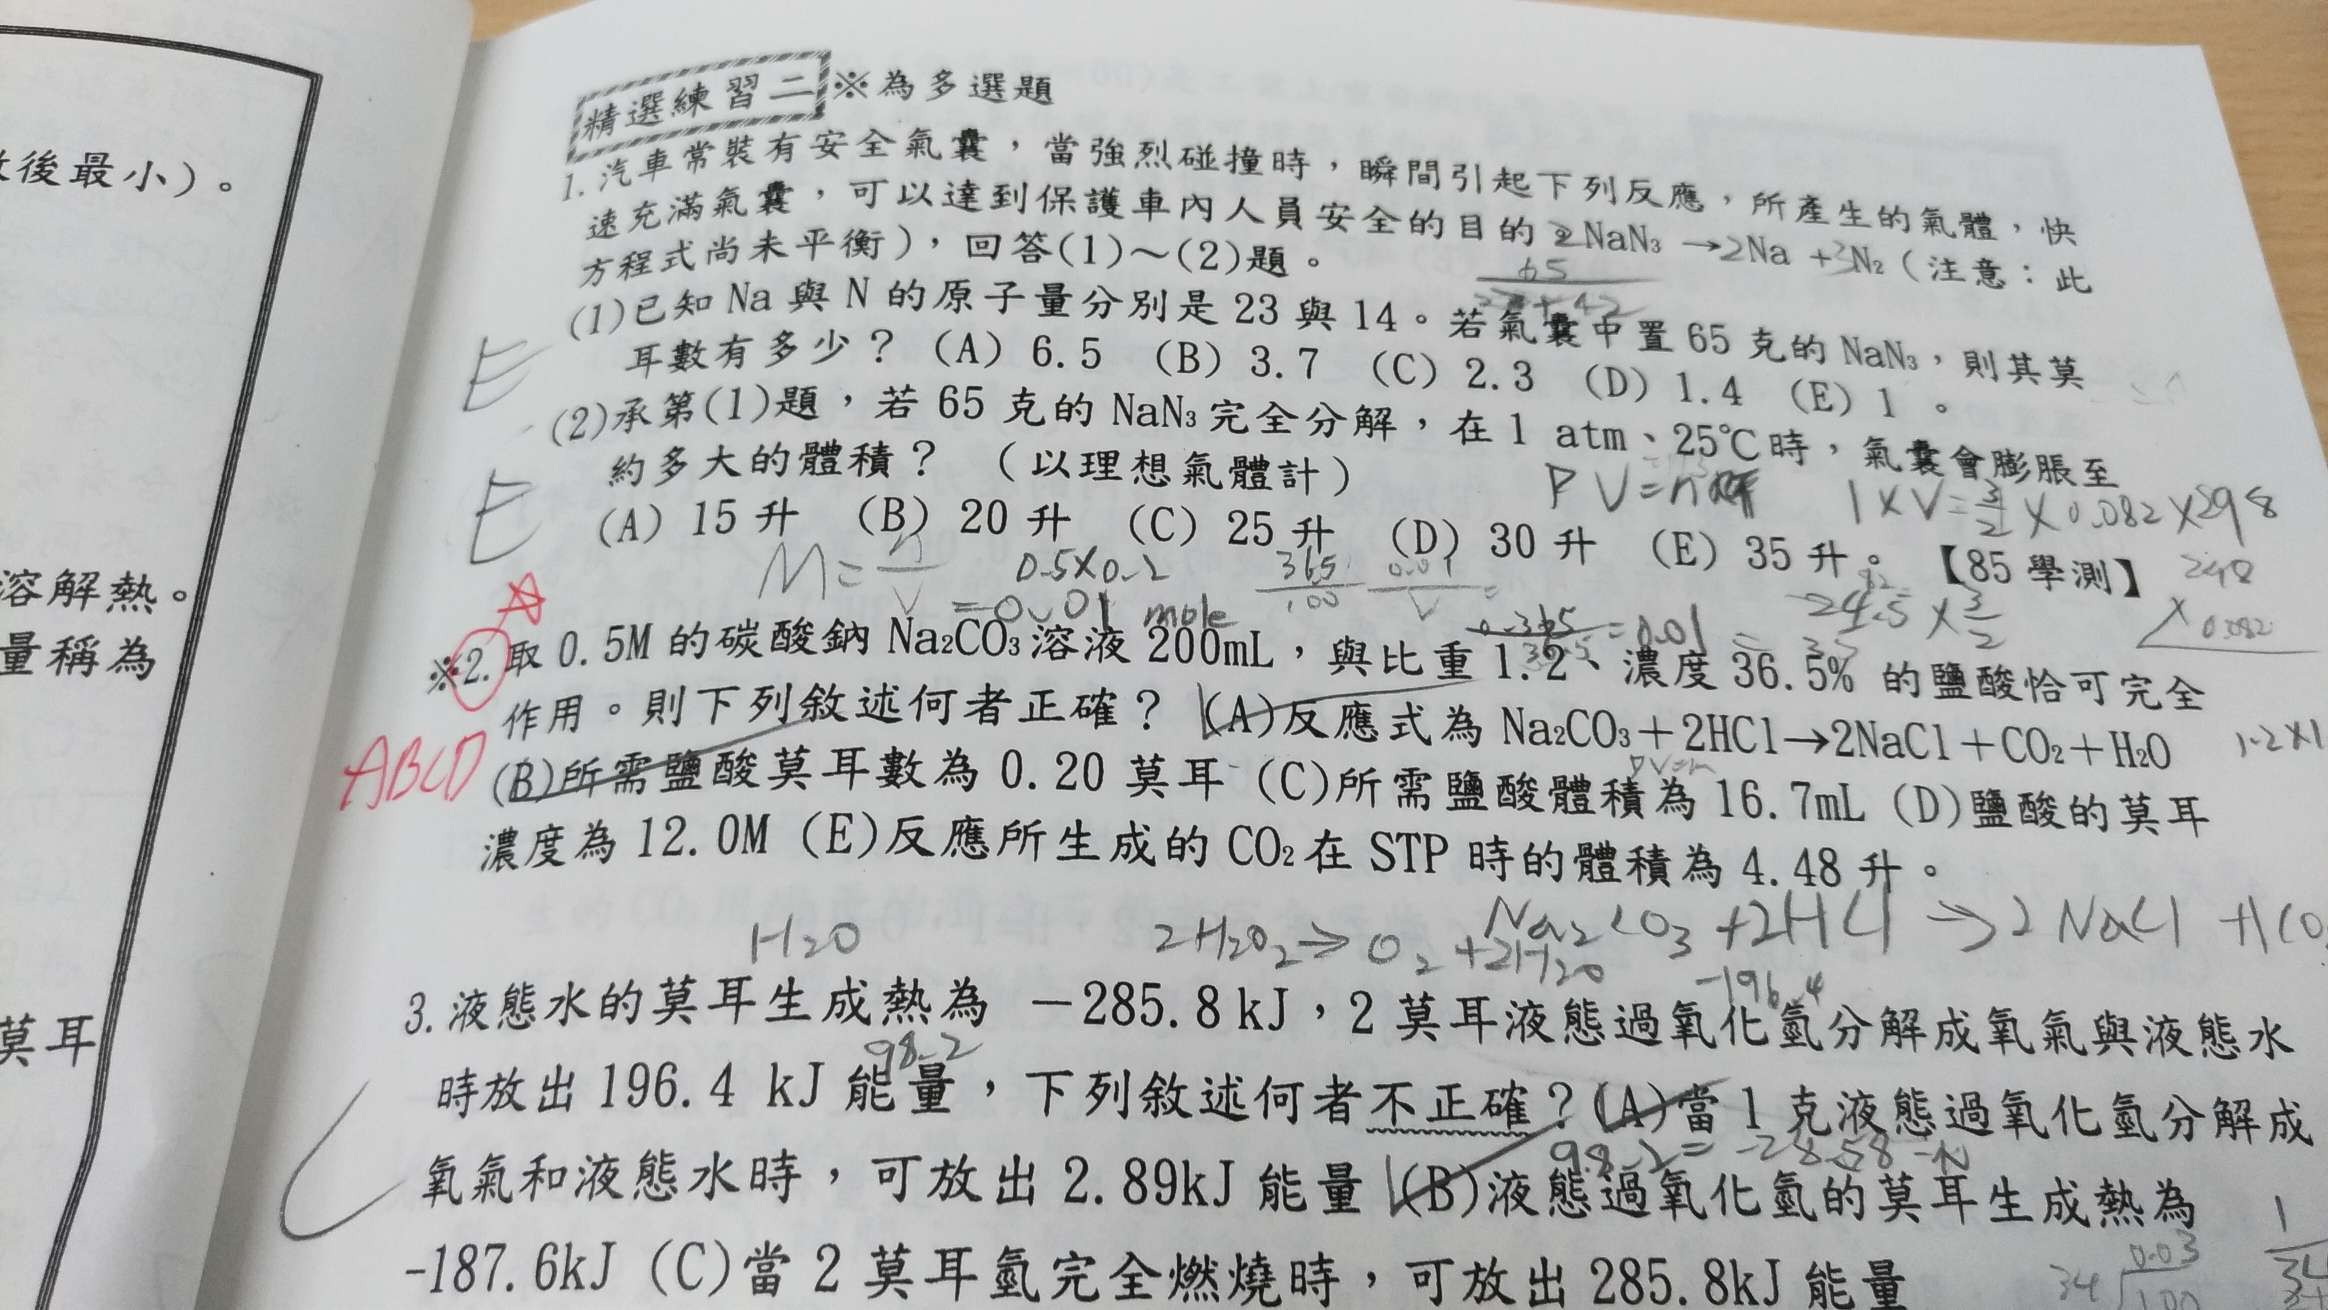 後最小)。
溶解熱。
量稱為
莫耳
精選練習二 ※為多選題
1.汽車常裝有安全氣囊,當強烈碰撞時,瞬間引起下列反應,所產生的氣體,快
速充滿氣囊,可以達到保護車內人員安全的目的 2NaN₃→2Na+3N₂(注意:此
方程式尚未平衡),回答(1)~(2)題。
65
23+42
(1)已知 Na 與 N 的原子量分別是 23 與 14。若氣囊中置 65 克的 NaN₃,則其莫
E
耳數有多少? (A) 6.5 (B) 3.7 (C) 2.3 (D) 1.4 (E) 1 。
(2)承第(1)題,若 65 克的 NaN₃完全分解,在 1 atm、25℃時,氣囊會膨脹至
約多大的體積? (以理想氣體計)
PV=n
1×V=3/2×0.082×298
E
(A) 15 升 (B) 20 升 (C) 25 升 (D) 30 升 (E) 35 升。【85 學測】
M=n/V
0.5×0.2
=0.01 mole
365/100
0.01/V
24.5×3/2
298
×0.082
A
※2.取 0.5M 的碳酸鈉 Na₂CO₃溶液 200mL,與比重 1.2、濃度 36.5% 的鹽酸恰可完全
作用。則下列敘述何者正確? (A)反應式為 Na₂CO₃+2HCl→2NaCl+CO₂+H₂O
1.2×1
ABCD
(B)所需鹽酸莫耳數為 0.20 莫耳 (C)所需鹽酸體積為 16.7mL (D)鹽酸的莫耳
濃度為 12.0M (E)反應所生成的 CO₂在 STP 時的體積為 4.48 升。
Na₂CO₃+2HCl→2NaCl+
H₂O
2H₂O₂→O₂+2H₂O
-196.4
3.液態水的莫耳生成熱為 -285.8kJ,2 莫耳液態過氧化氫分解成氧氣與液態水
98.2
時放出 196.4 kJ 能量,下列敘述何者不正確?(A)當 1 克液態過氧化氫分解成
98.2=-285.8-
C
氧氣和液態水時,可放出 2.89kJ 能量 (B)液態過氧化氫的莫耳生成熱為
-187.6kJ (C)當 2 莫耳氫完全燃燒時,可放出 285.8kJ 能量
0.03
34
100
1
34